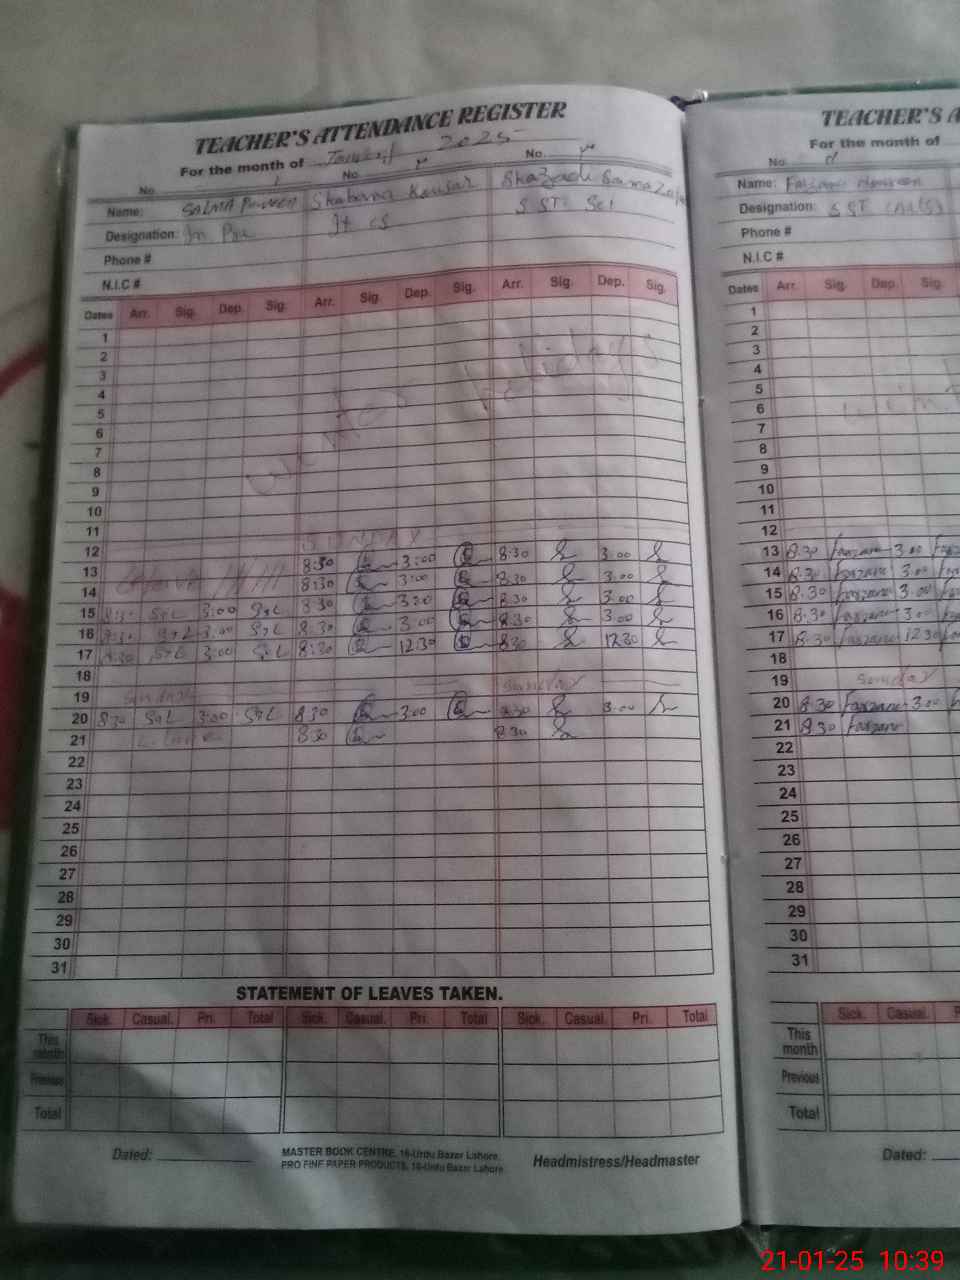 TEACHER'S ATTENDANCE REGISTER
For the month of January 2025
No. No. No.
Name: SALMA Parveen Shabana Kousar Shazadi
Designation: SST Sci
Phone #
N.I.C #
Dates Arr. Sig. Dep. Sig. Arr. Sig. Dep. Sig. Arr. Sig. Dep. Sig.
1
2
3
4
5
6
7
8
9
10
winter holidays
11
SUNDAY
12
13 8:30 3:00 8:30 3:00
14 8:30 3:00 8:30 3:00
15 8:30 SqL 3:00 SqL 8:30 3:00 8:30 3:00
16 8:30 SqL 3:00 SqL 8:30 3:00 8:30 3:00
17 8:30 SqL 3:00 SqL 8:30 12:30 8:30 12:30
18
19 Sunday Sunday
20 8:30 SqL 3:00 SqL 8:30 3:00 8:30 3:00
21 8:30 8:30
22
23
24
25
26
27
28
29
30
31
STATEMENT OF LEAVES TAKEN.
Sick. Casual. Pri. Total Sick. Casual. Pri. Total Sick. Casual. Pri. Total
This month
Previous
Total
Dated:
MASTER BOOK CENTRE, 16-Urdu Bazar Lahore.
PRO FINE PAPER PRODUCTS, 16-Urdu Bazar Lahore.
Headmistress/Headmaster
TEACHER'S A
For the month of
No.
Name:
Designation: SST (Arts)
Phone #
N.I.C #
Dates Arr. Sig. Dep. Sig.
1
2
3
4
5
6
7
8
9
10
11
12
13 8:30 Farzana 3:00
14 8:30 Farzana 3:00
15 8:30 Farzana 3:00
16 8:30 Farzana 3:00
17 8:30 Farzana 12:30
18
19 Sunday
20 8:30 Farzana 3:00
21 8:30 Farzana
22
23
24
25
26
27
28
29
30
31
Sick. Casual.
This month
Previous
Total
Dated:
21-01-25 10:39